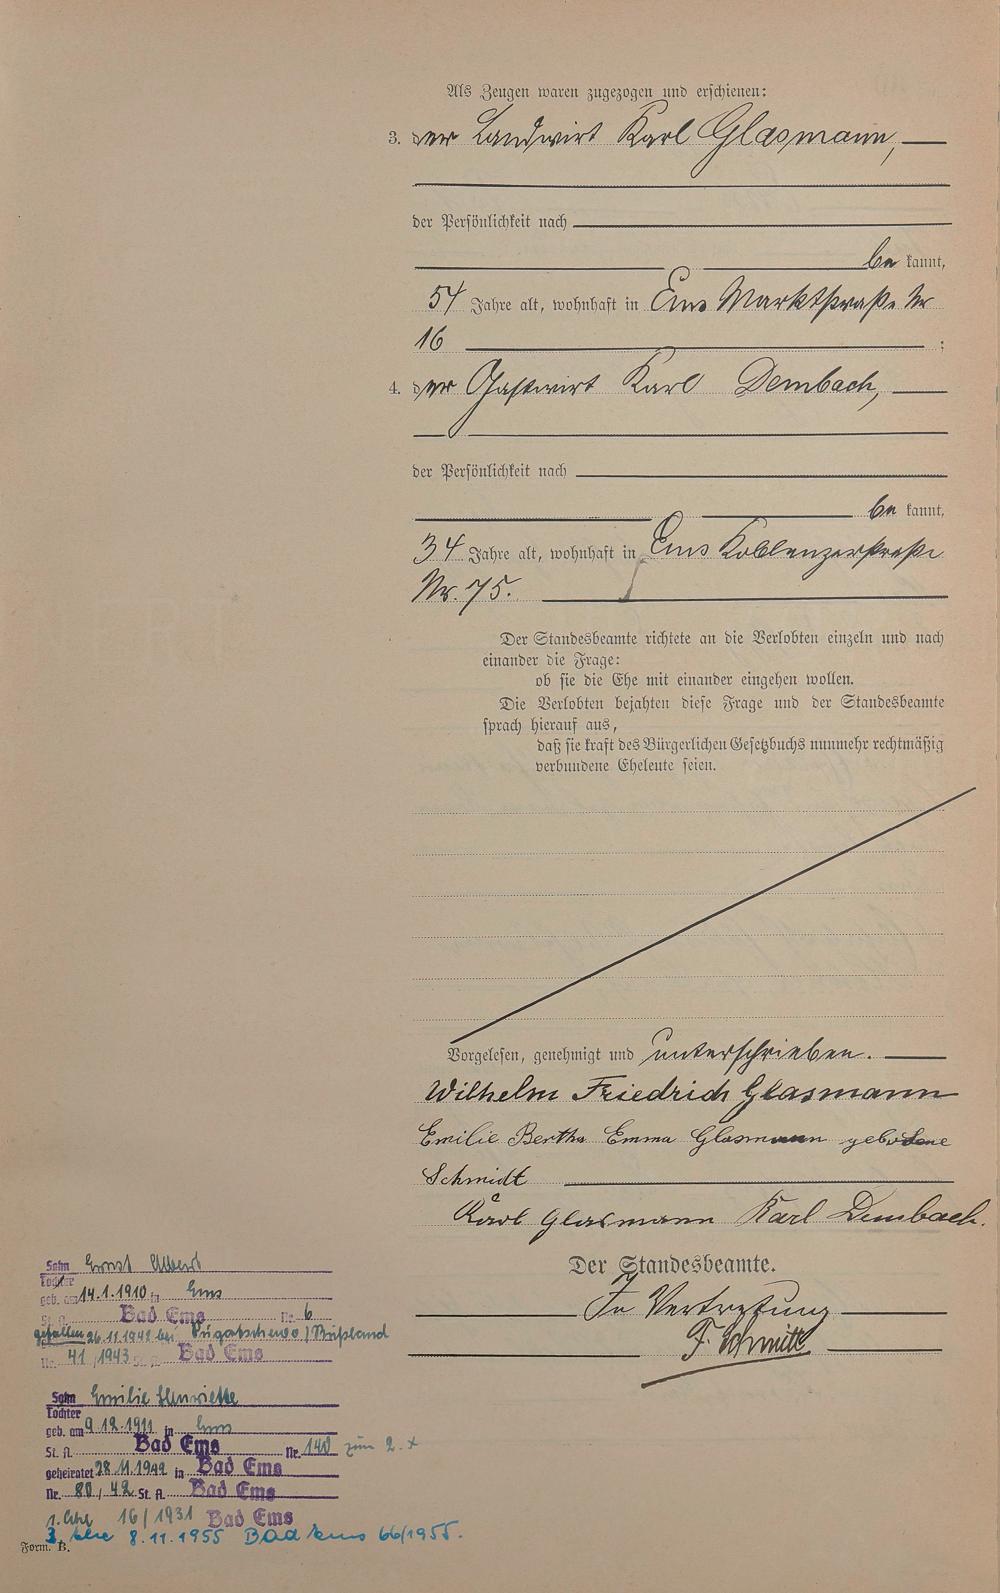 Als Zeugen waren zugezogen und erschienen:
3. der Landwirt Karl Glasmann,
der Persönlichkeit nach
be kannt,
54 Jahre alt, wohnhaft in Ems Marktstraße Nr
16 ;
4. der Gastwirt Karl Dembach,
der Persönlichkeit nach
be kannt,
34 Jahre alt, wohnhaft in Ems Koblenzerstraße
Nr. 75.
Der Standesbeamte richtete an die Verlobten einzeln und nach
einander die Frage:
ob sie die Ehe mit einander eingehen wollen.
Die Verlobten bejahten diese Frage und der Standesbeamte
sprach hierauf aus,
daß sie kraft des Bürgerlichen Gesetzbuchs nunmehr rechtmäßig
verbundene Eheleute seien.
Vorgelesen, genehmigt und unterschrieben.
Wilhelm Friedrich Glasmann
Emilie Bertha Emma Glasmann geborene
Schmidt
Karl Glasmann Karl Dembach.
Der Standesbeamte.
In Vertretung
F. Schmitt
Sohn Ernst Albert
Tochter
geb. am 14.1.1910 in Ems
St. A. Bad Ems Nr. 6
gefallen 26.11.1942 bei Pugatschewo/Rußland
Nr. 41/1943 St. A. Bad Ems
Sohn Emilie Henriette
Tochter
geb. am 9.12.1911 in Ems
St. A. Bad Ems Nr. 140 zum 2. x
geheiratet 28.11.1942 in Bad Ems
Nr. 80/42 St. A. Bad Ems
1. Ehe 16/1931 Bad Ems
3. Ehe 8.11.1955 Bad Ems 66/1955.
Form. B.